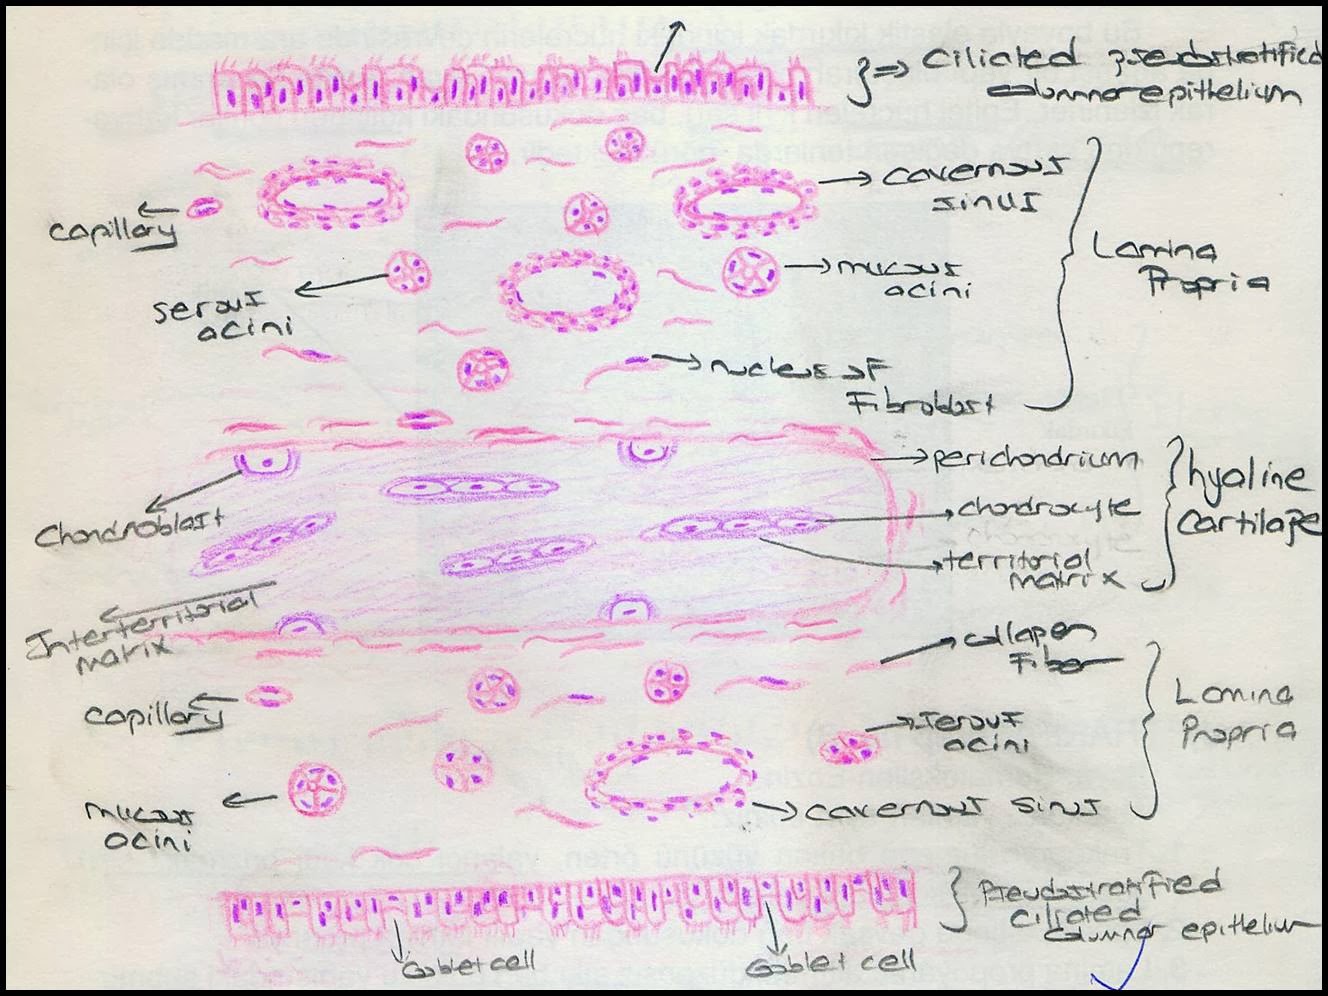 Ciliated pseudostratified
columnar epithelium
cavernous
sinus
capillary
Lamina
Propria
mucous
acini
serous
acini
nucleus of
Fibroblast
perichondrium
hyaline
Cartilage
chondrocyte
Chondroblast
territorial
matrix
Interterritorial
matrix
collagen
Fiber
capillary
Lamina
Propria
serous
acini
mucous
acini
cavernous sinus
Pseudostratified
ciliated
columnar epithelium
Goblet cell
Goblet cell